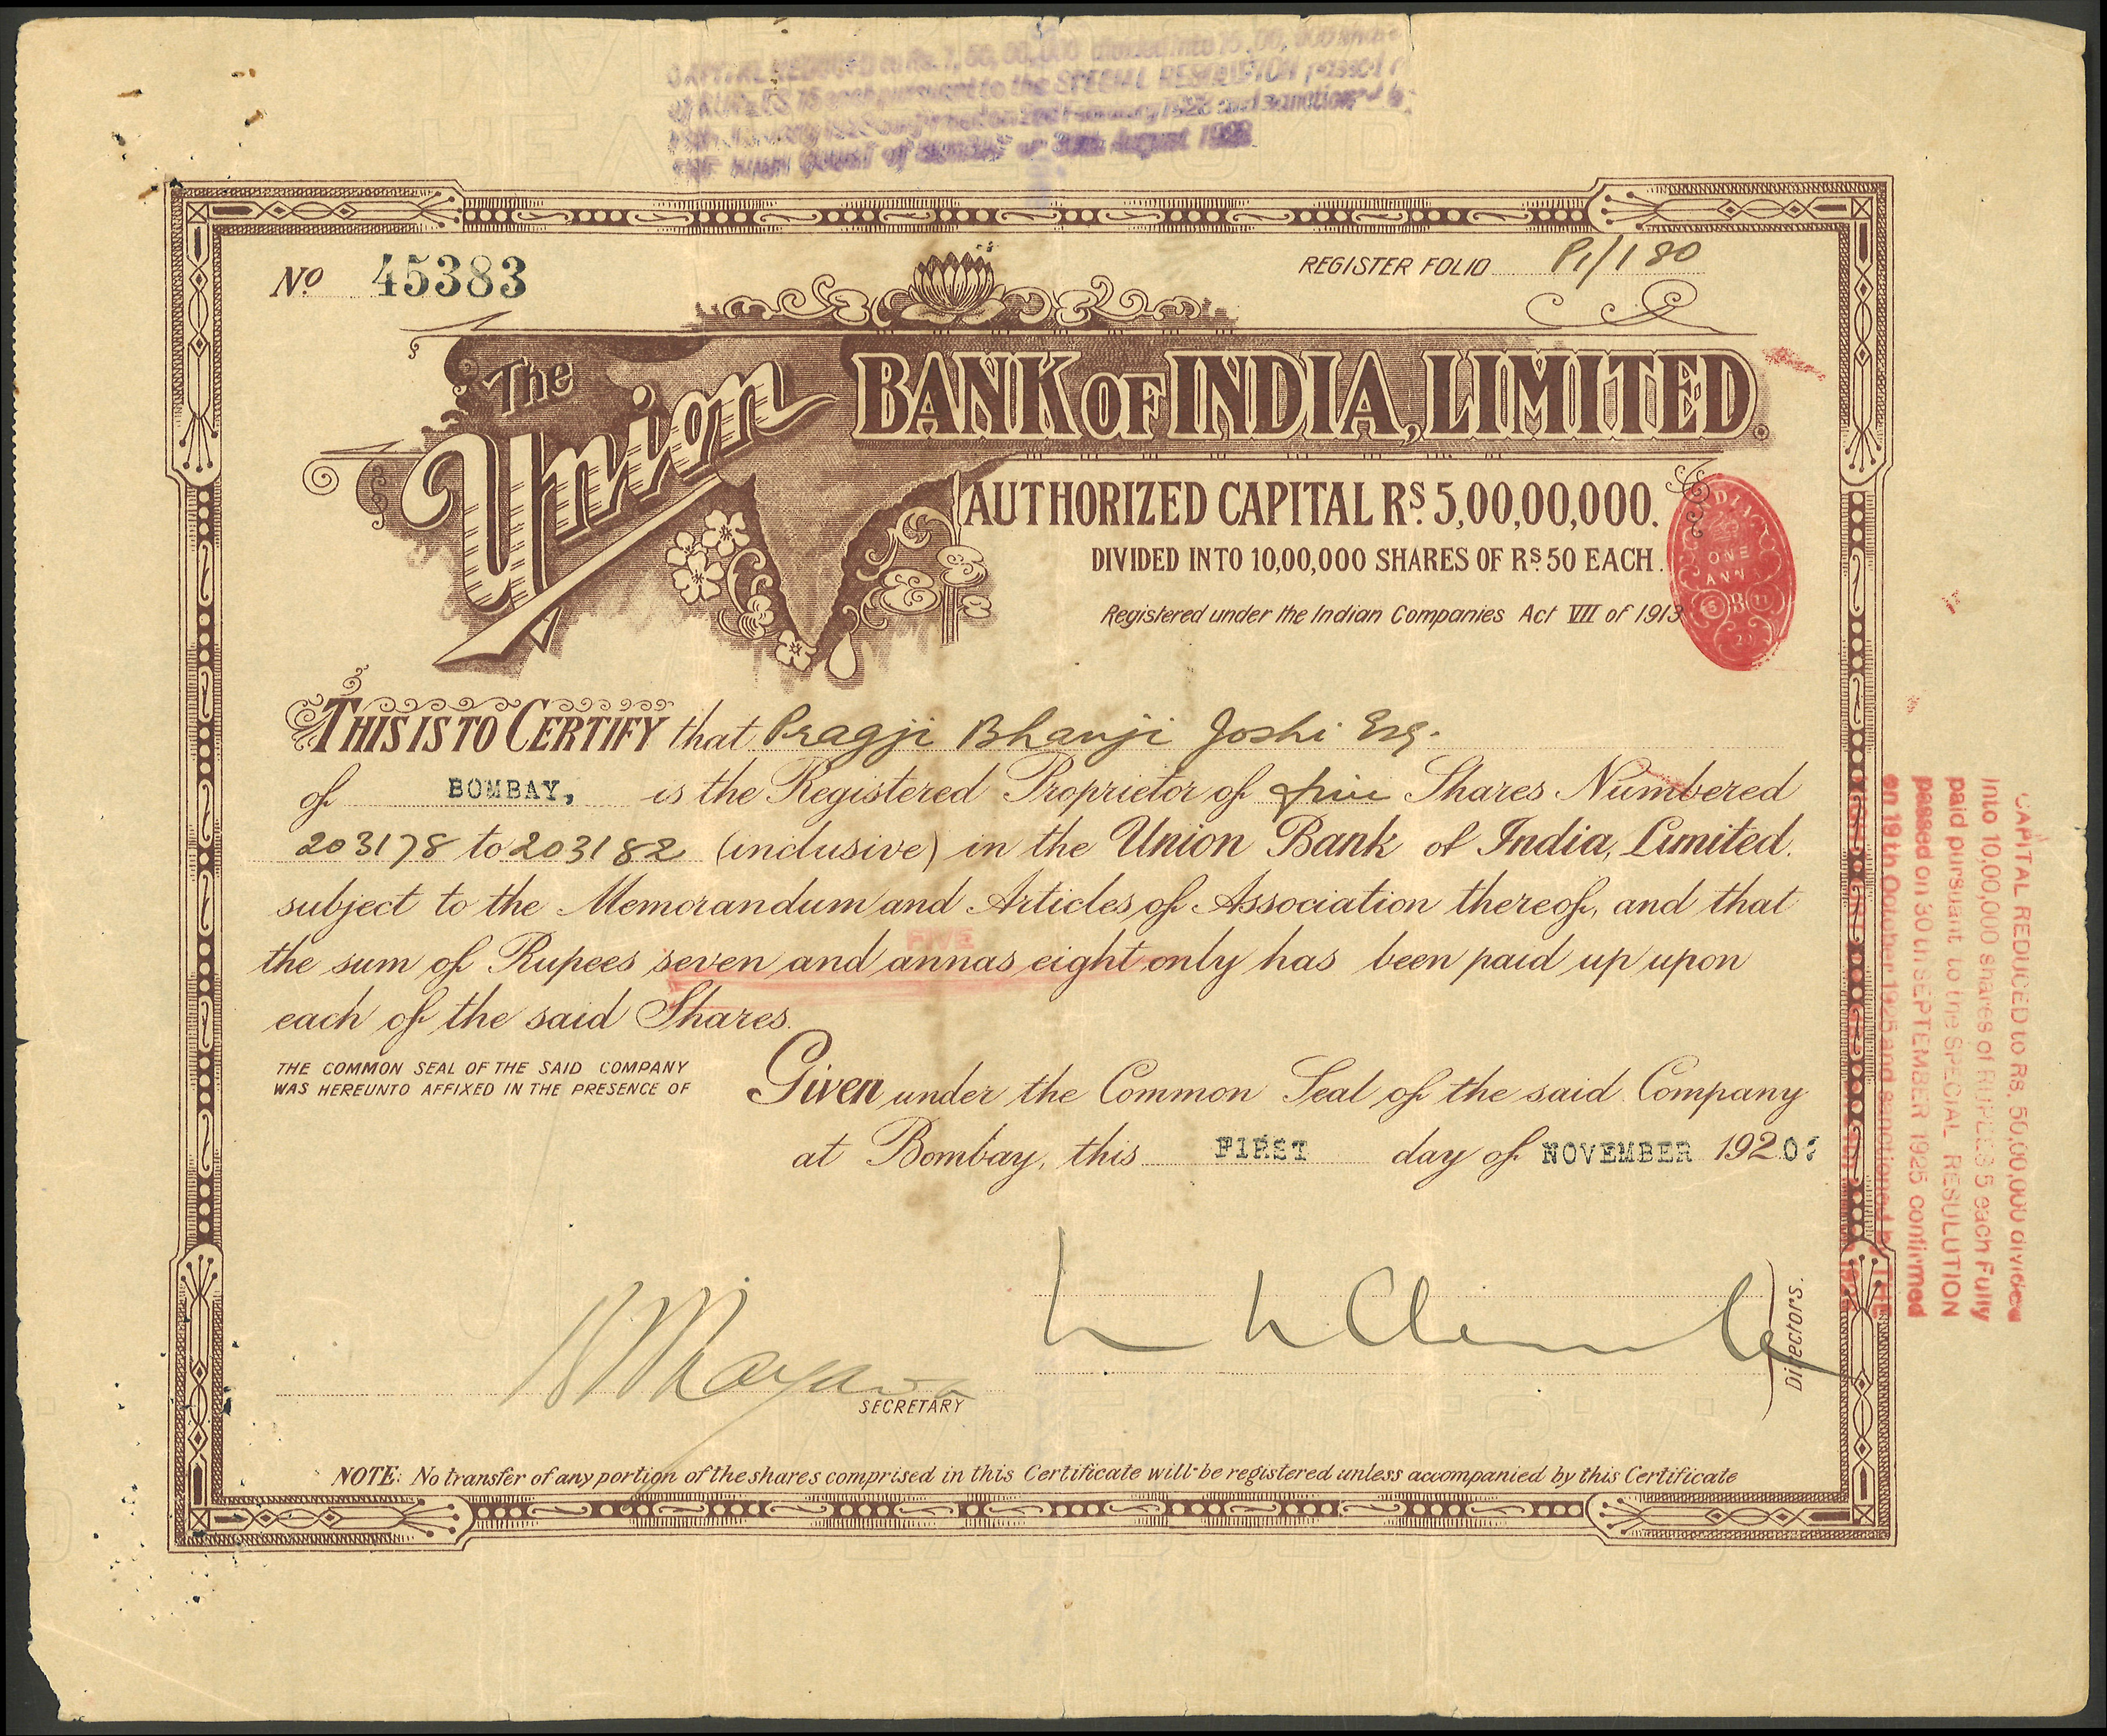 CAPITAL REDUCED to Rs. 7,50,00,000 divided into 15,00,000 share
of RUPEES 15 each pursuant to the SPECIAL RESOLUTION passed
and sanctioned
THE HIGH COURT of August
No 45383
REGISTER FOLIO P1/180
The Union BANK OF INDIA, LIMITED.
AUTHORIZED CAPITAL RS. 5,00,00,000.
DIVIDED INTO 10,00,000 SHARES OF RS. 50 EACH.
Registered under the Indian Companies Act VII of 1913
INDIA
ONE
ANNA
THIS IS TO CERTIFY that Pragji Bhanji Joshi Esq.
of BOMBAY, is the Registered Proprietor of five Shares Numbered
203178 to 203182 (inclusive) in the Union Bank of India, Limited.
subject to the Memorandum and Articles of Association thereof, and that
FIVE
the sum of Rupees seven and annas eight only has been paid up upon
each of the said Shares.
THE COMMON SEAL OF THE SAID COMPANY
WAS HEREUNTO AFFIXED IN THE PRESENCE OF
Given under the Common Seal of the said Company
at Bombay, this FIRST day of NOVEMBER 1920.
SECRETARY
Directors.
NOTE: No transfer of any portion of the shares comprised in this Certificate will be registered unless accompanied by this Certificate
CAPITAL REDUCED to RS. 50,00,000 divided
into 10,00,000 shares of RUPEES 5 each Fully
paid pursuant to the SPECIAL RESOLUTION
passed on 30th SEPTEMBER 1925 confirmed
on 19th October 1925 and sanctioned by THE